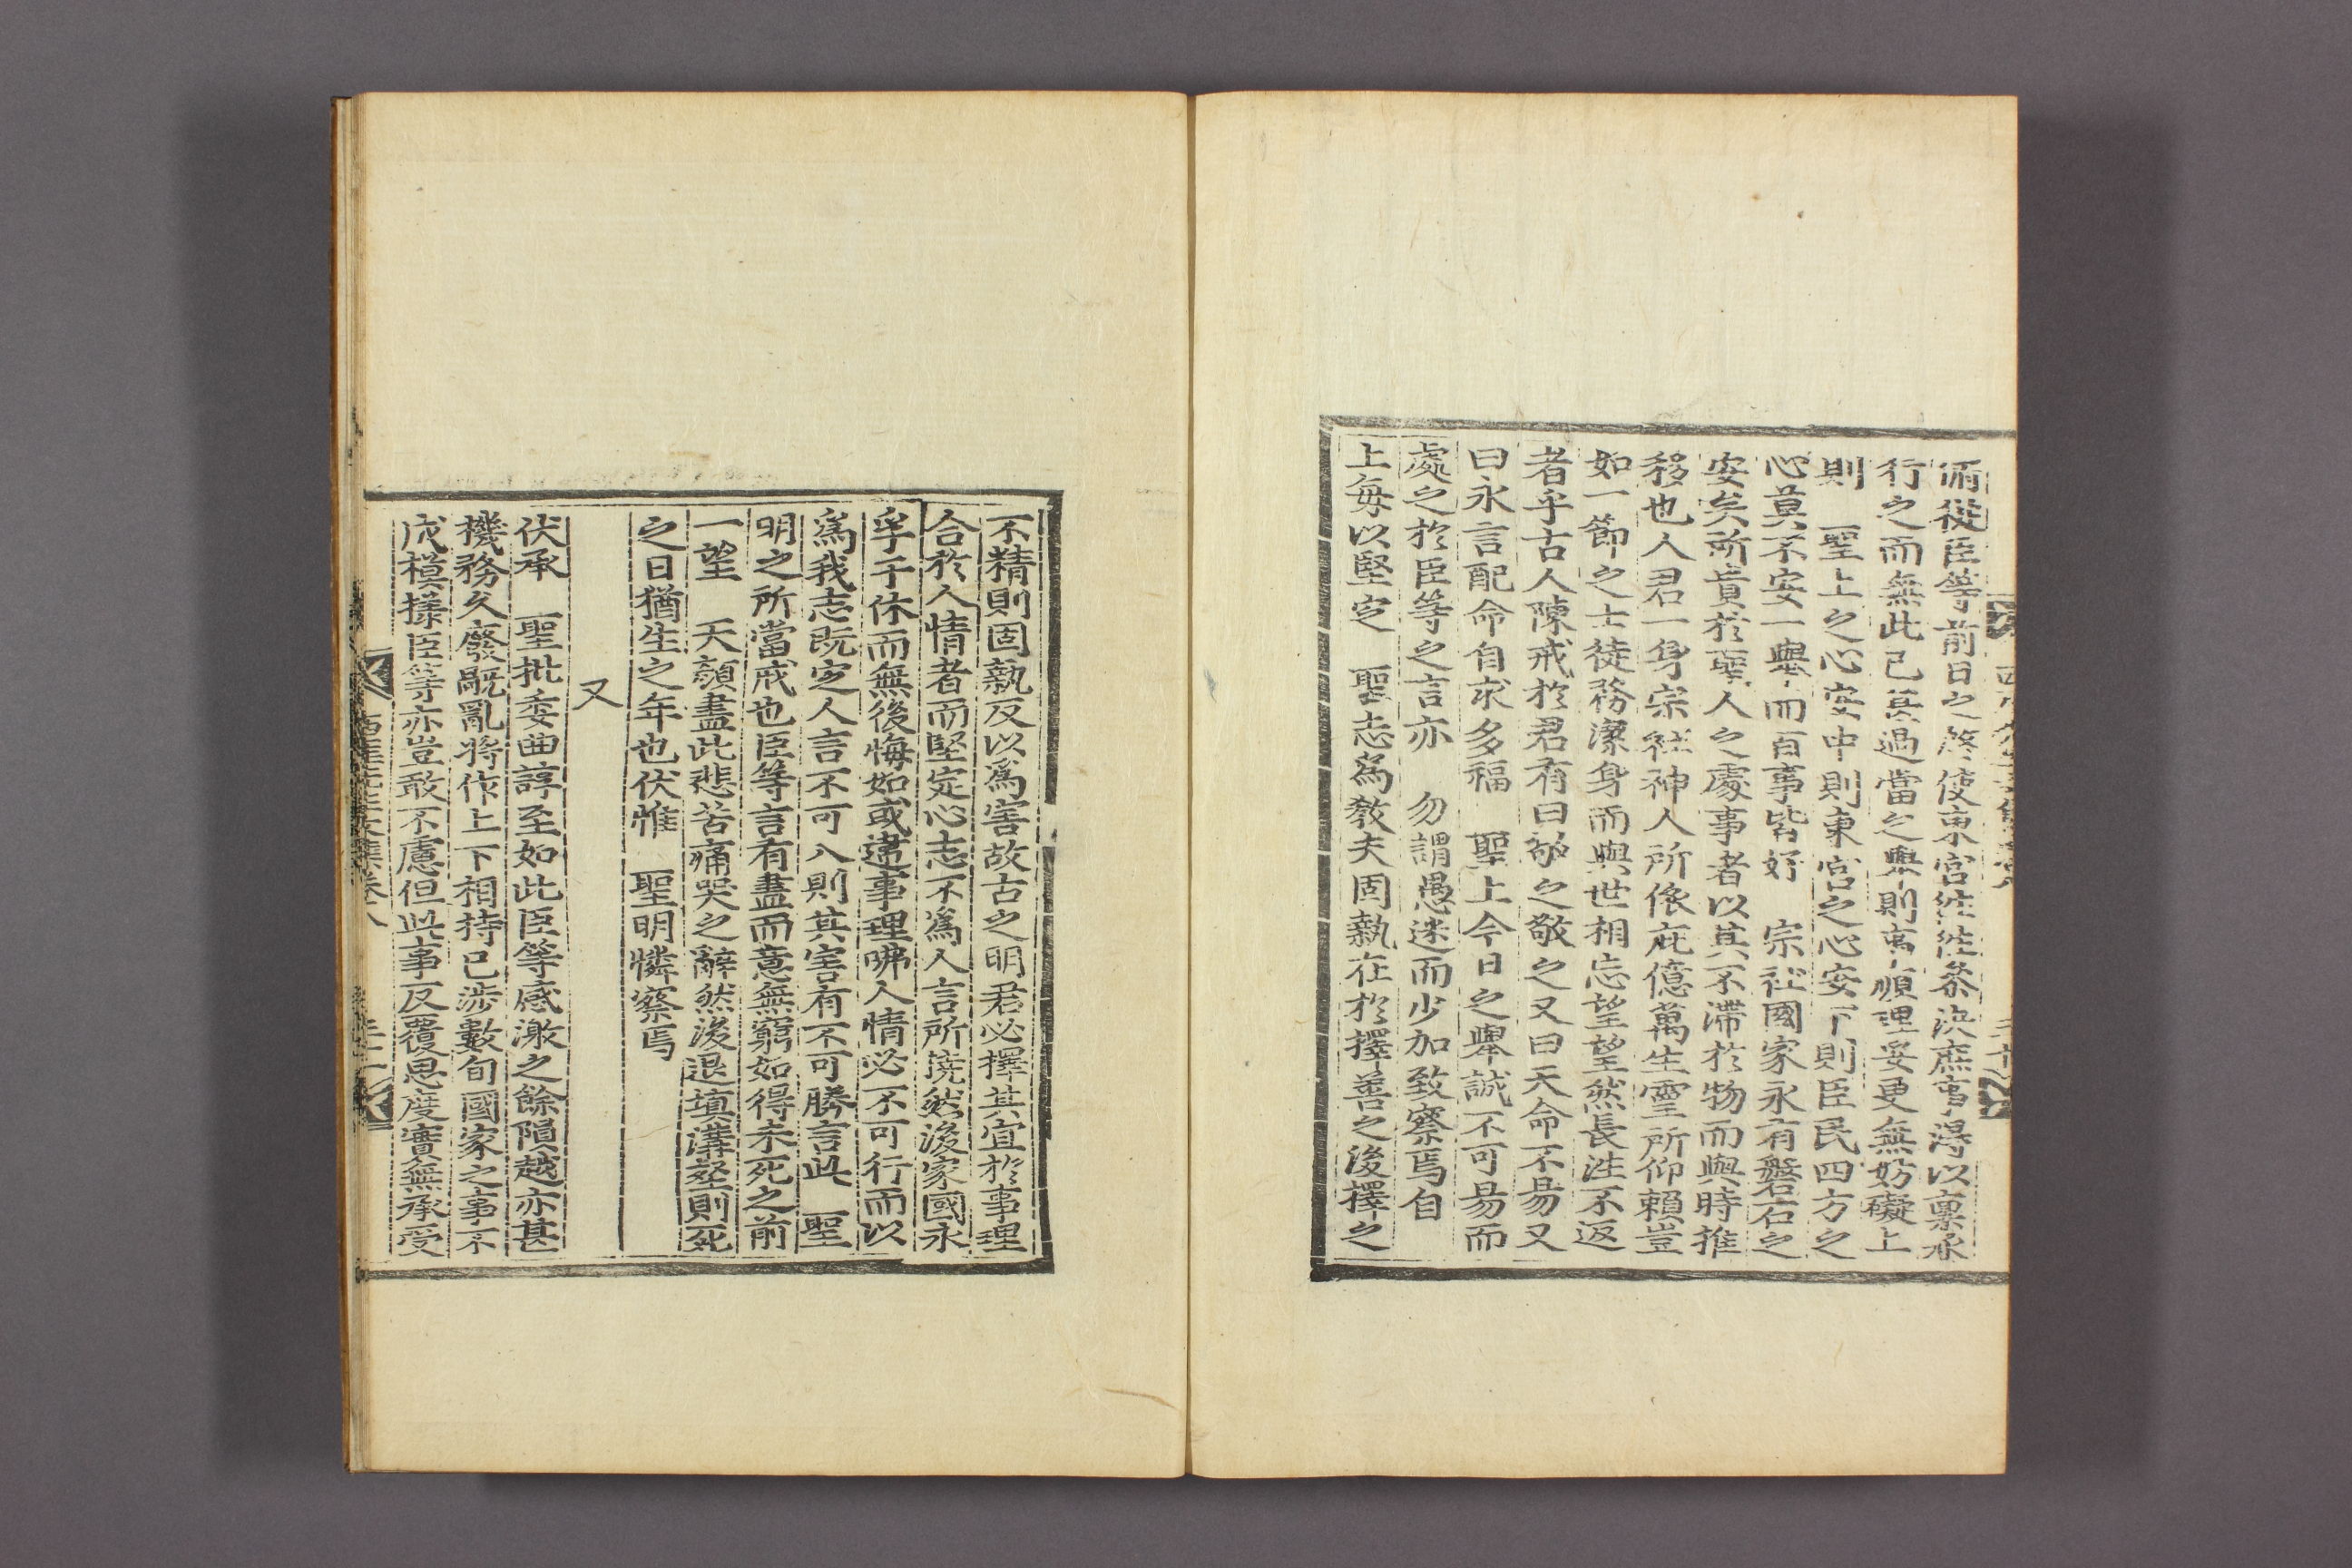 俯從臣等前日之啓使東宮往往叅決庶事得以稟承
行之而無此已甚過當之擧則萬順理妥更無妨礙上
則　聖上之心安中則東宮之心安下則臣民四方之
心莫不安一擧而百事皆好　宗社國家永有磐石之
安矣所貴於聖人之處事者以其不滯於物而與時推
移也人君一身宗社神人所係庇億萬生靈所仰賴豈
如一節之士徒務潔身而與世相忘望望然長往不返
者乎古人陳戒於君有曰敬之敬之又曰天命不易又
曰永言配命自求多福　聖上今日之擧誠不可易而
處之於臣等之言亦　勿謂愚迷而少加致察焉自
上每以堅定　聖志爲敎夫固執在於擇善之後擇之
不精則固執反以爲害故古之明君必擇其宜於事理
合於人情者而堅定心志不爲人言所撓然後家國永
孚于休而無後悔如或違事理咈人情必不可行而以
爲我志旣定人言不可入則其害有不可勝言此　聖
明之所當戒也臣等言有盡而意無窮如得未死之前
一望　天顔盡此悲苦痛哭之辭然後退塡溝壑則死
之日猶生之年也伏惟　聖明憐察焉
又
伏承　聖批委曲諄至如此臣等感激之餘隕越亦甚
機務久廢亂將作上下相持已涉數旬國家之事不
成模㨾臣等亦豈敢不慮但此事反覆思度實無承受
西厓先生文集卷八